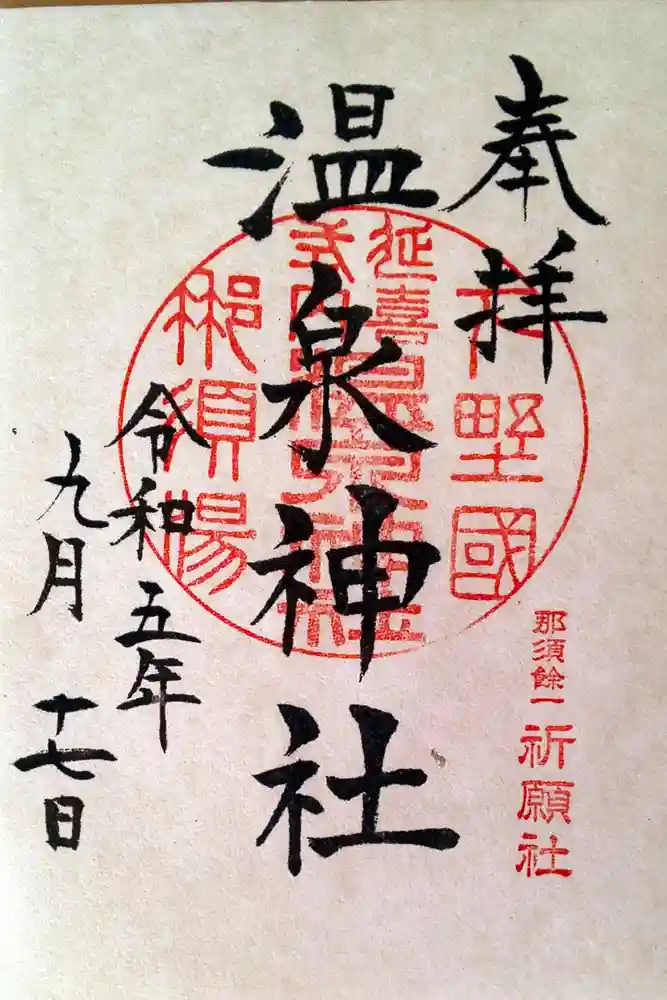 奉拝
那須餘一
祈願社
下野國
延喜
式内
温泉神社
温泉神社
那須湯
令和五年
九月十七日